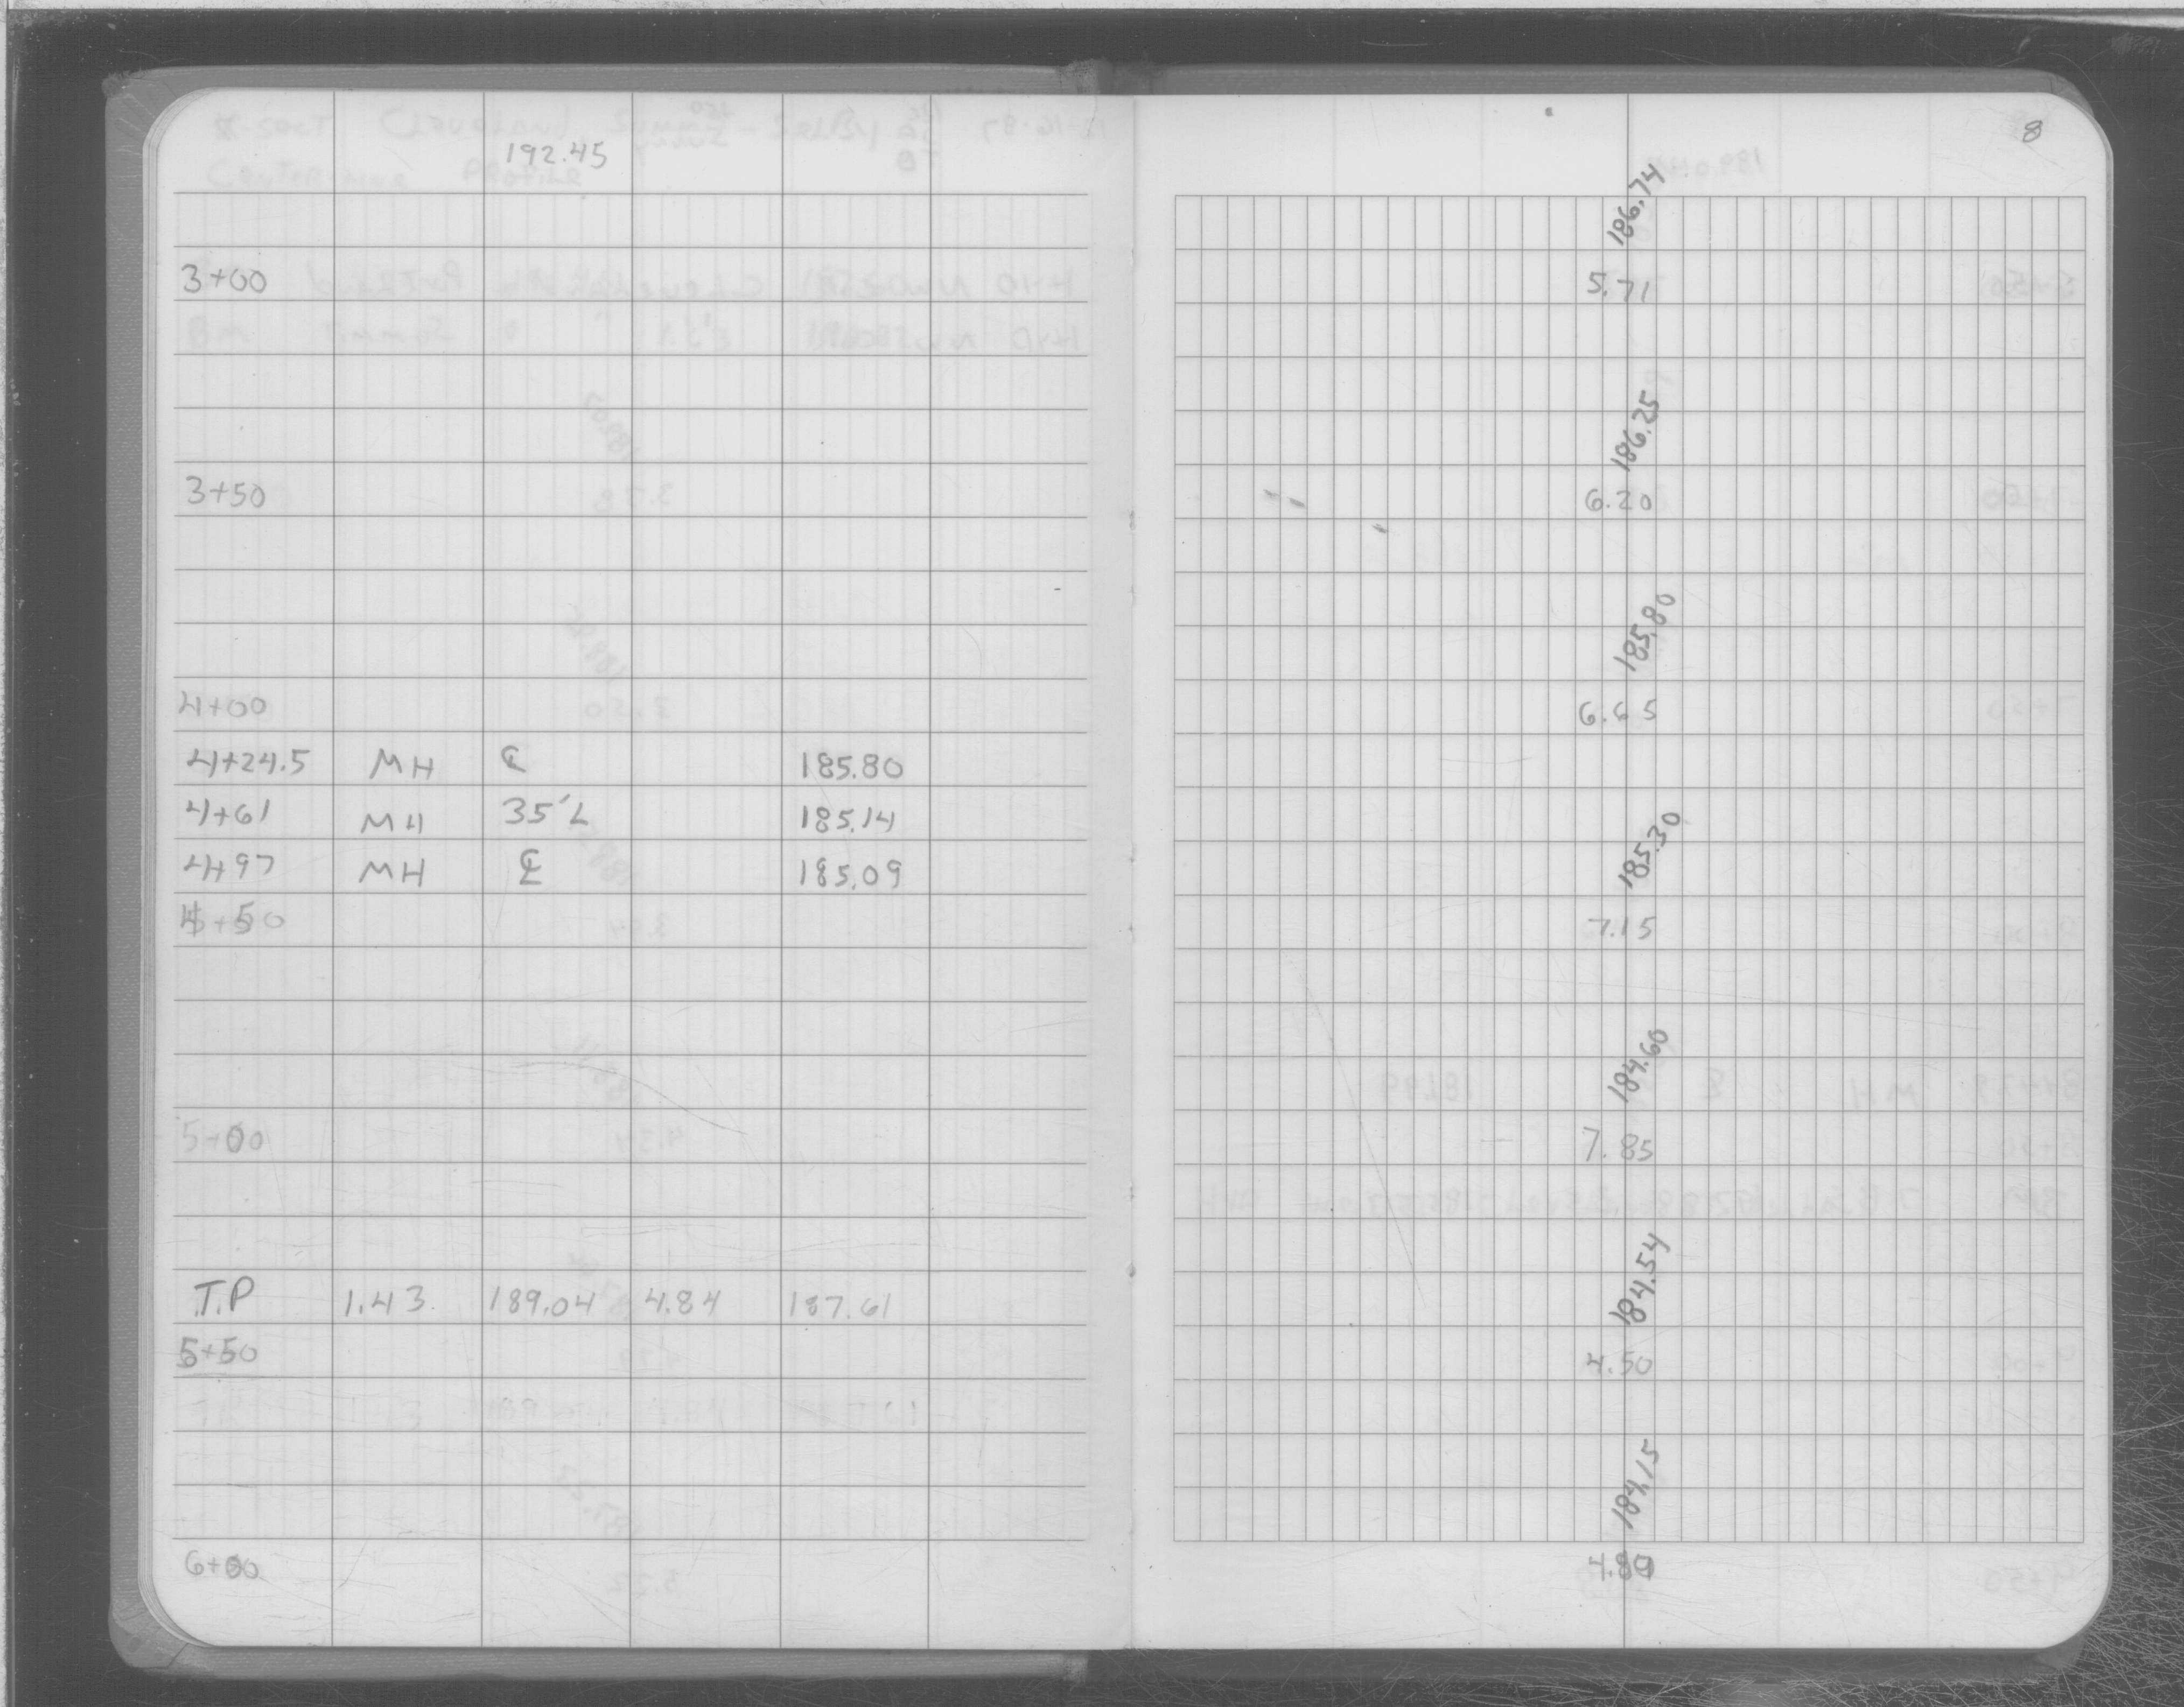 8
192.45
186.74
3+00 5.71
186.25
3+50 6.20
185.80
4+00 6.65
4+24.5 MH ℄ 185.80
4+61 MH 35'L 185.14
185.30
4+97 MH ℄ 185.09
4+50 7.15
184.60
5+00 7.85
184.54
T.P 1.43 189.04 4.84 187.61
5+50 4.50
184.15
6+00 4.89